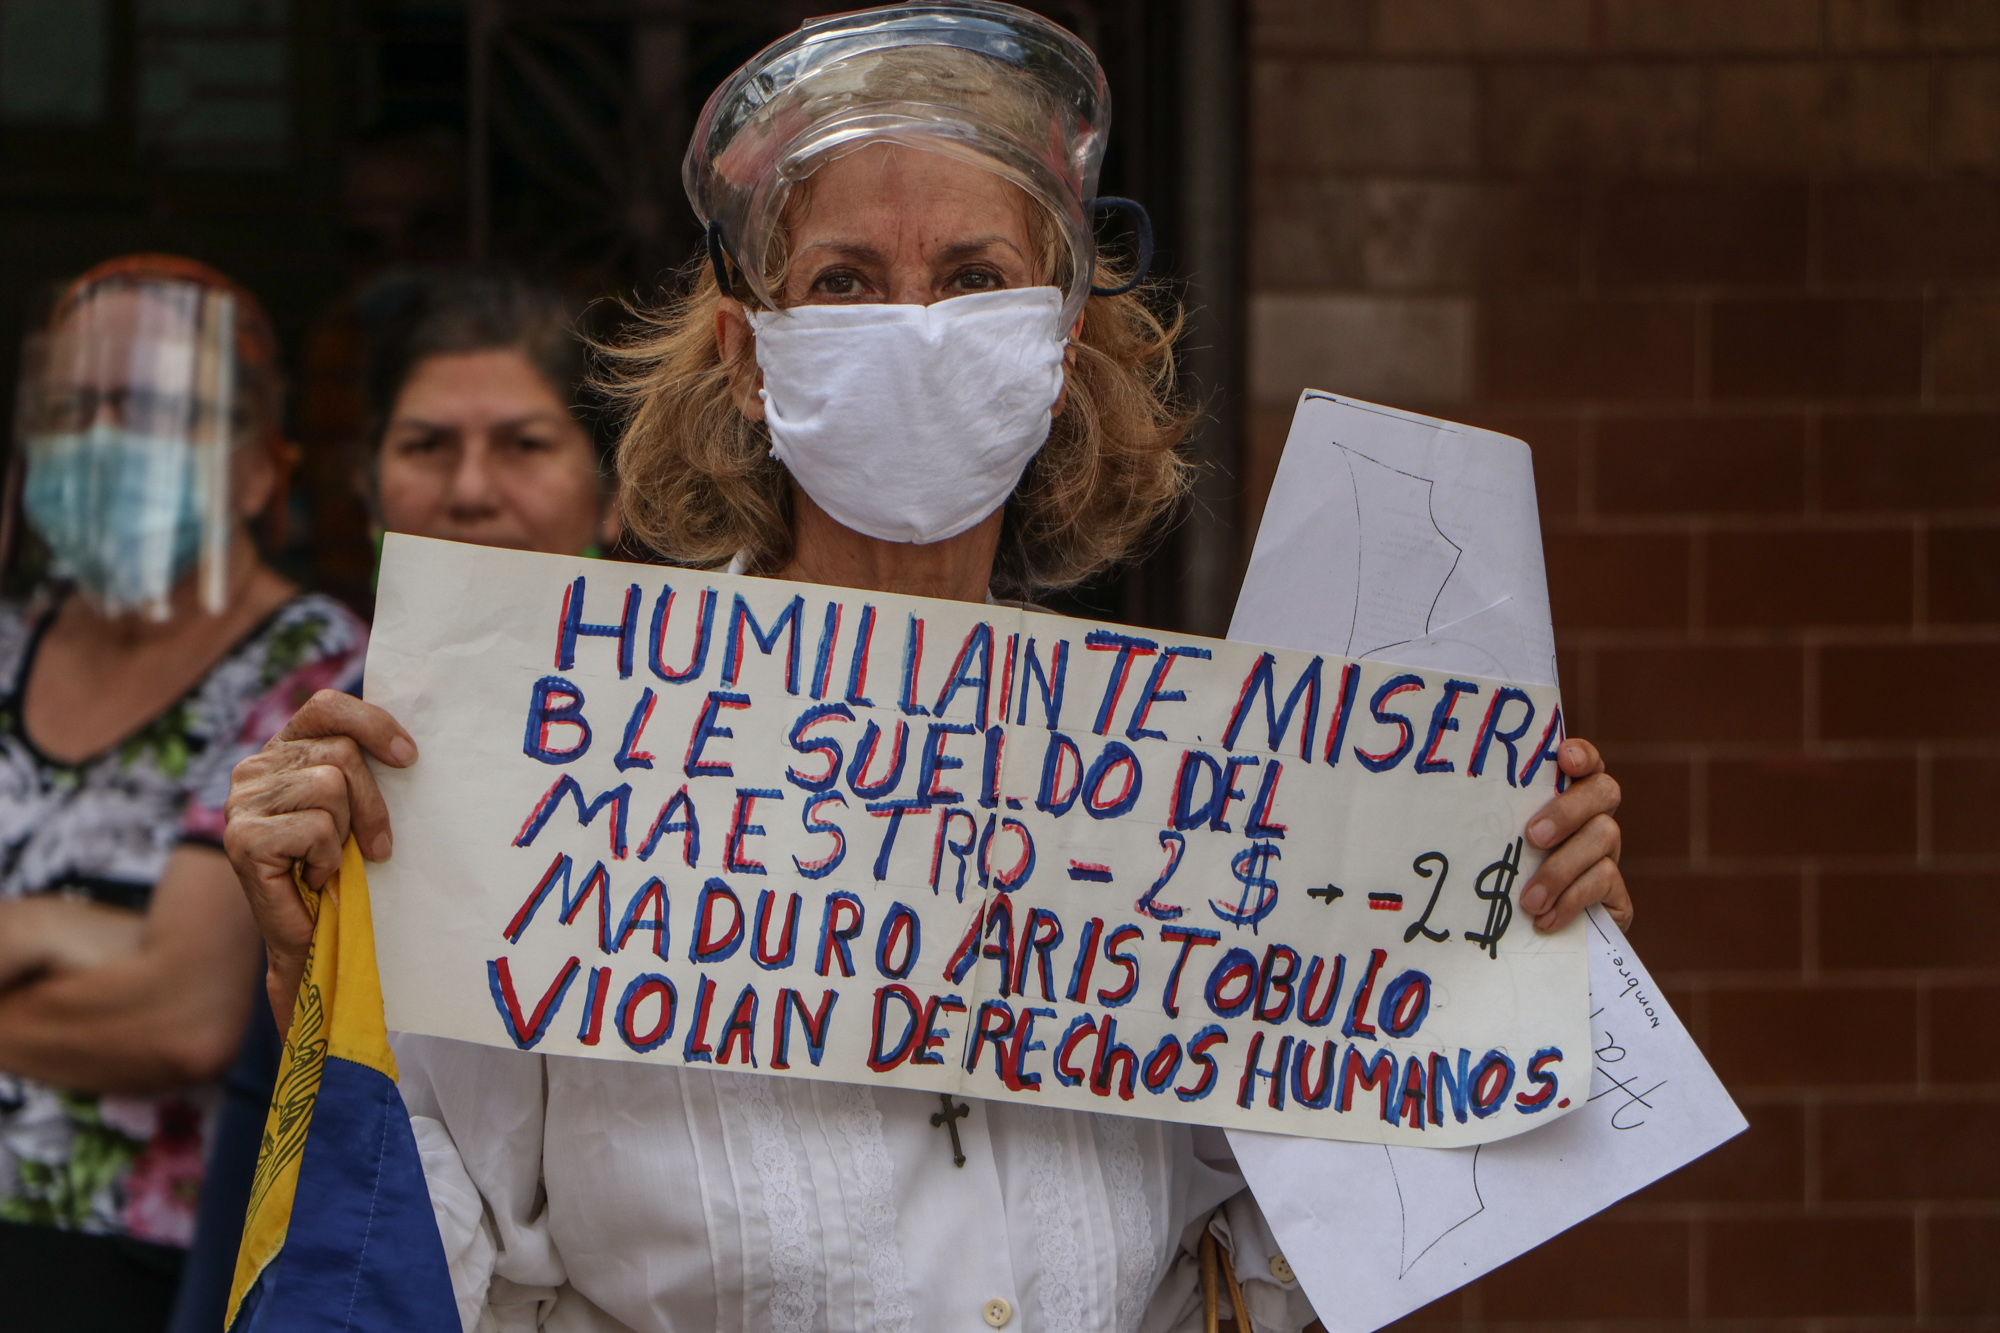 HUMILLANTE MISERA
BLE SUELDO DEL
MAESTRO - 2 $ → - 2 $
MADURO ARISTOBULO
VIOLAN DERECHOS HUMANOS.
Nombre: